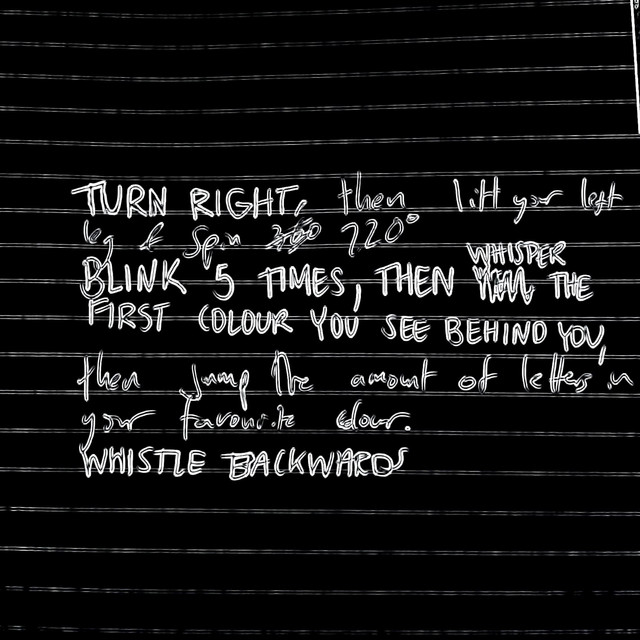 TURN RIGHT, then lift your left
leg & Spin 720°
WHISPER
BLINK 5 TIMES, THEN THE
FIRST COLOUR YOU SEE BEHIND YOU,
then Jump the amount of letters in
your favourite colour.
WHISTLE BACKWARDS